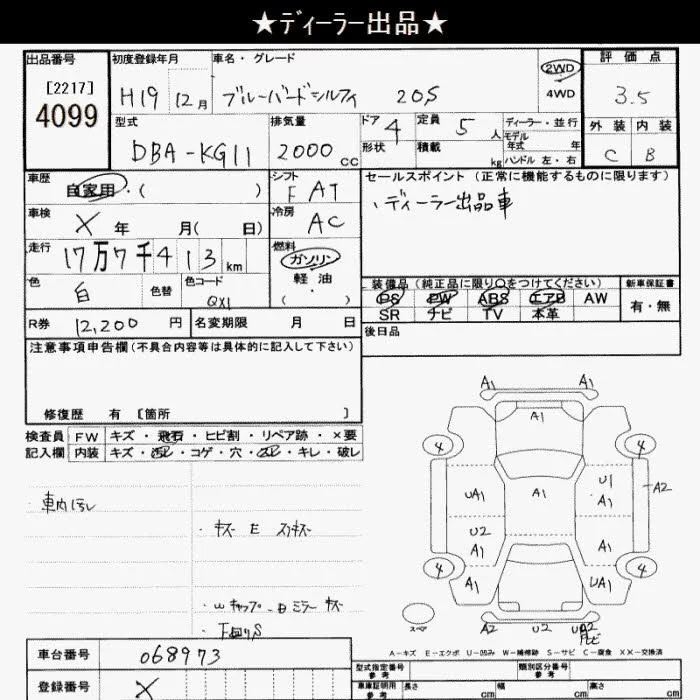 ★ディーラー出品★
出品番号 初度登録年月 車名・グレード 2WD 4WD 評価点
[2217] 4099 H19 12月 ブルーバードシルフィ 20S 3.5
型式 排気量 ドア 形状 定員 積載 ディーラー・並行 外装 内装
DBA-KG11 2000cc 4 5人 kg モデル年式 年 ハンドル 左・右 C B
車歴 自家用・( ) シフト FAT セールスポイント (正常に機能するものに限ります)
、ディーラー出品車
車検 X年 月( 日) 冷房 AC
走行 17万7千413km 燃料 ガソリン 軽油 ( )
色 白 色替 色コード QX1
装備品(純正品に限り○をつけてください) 新車保証書
PS PW ABS エアB AW 有・無
SR ナビ TV 本革
R券 12,200円 名変期限 月 日 後日品
注意事項申告欄(不具合内容等は具体的に記入して下さい)
修復歴 有 〔箇所 〕
検査員 FW キズ・飛石・ヒビ割・リペア跡・×要
記入欄 内装 キズ・汚レ・コゲ・穴・スレ・キレ・破レ
・車内汚レ
・キズ E スリキズ
・Wキャップ
ミラー キズ
下回りS
A1 A1
A1
4 4
UA1 A1 U1 A1 A2
U2 A1 A1
4 4
A1 UA1
スペア A2 U2
A-キズ E-エクボ U-凹み W-補修跡 S-サビ C-腐食 XX-交換済
車台番号 068973
登録番号 X
型式指定番号 参考 類別区分番号 参考
車庫証明用 参考 長さ cm 幅 cm 高さ cm